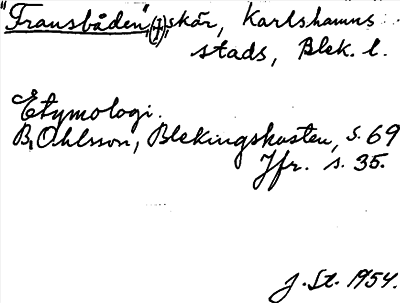 "Fransbåden" (†), skär, Karlshamns
stads, Blek. l.
Etymologi.
B. Ohlsson, Blekingskusten, s. 69
Jfr. s. 35.
J. St. 1954.